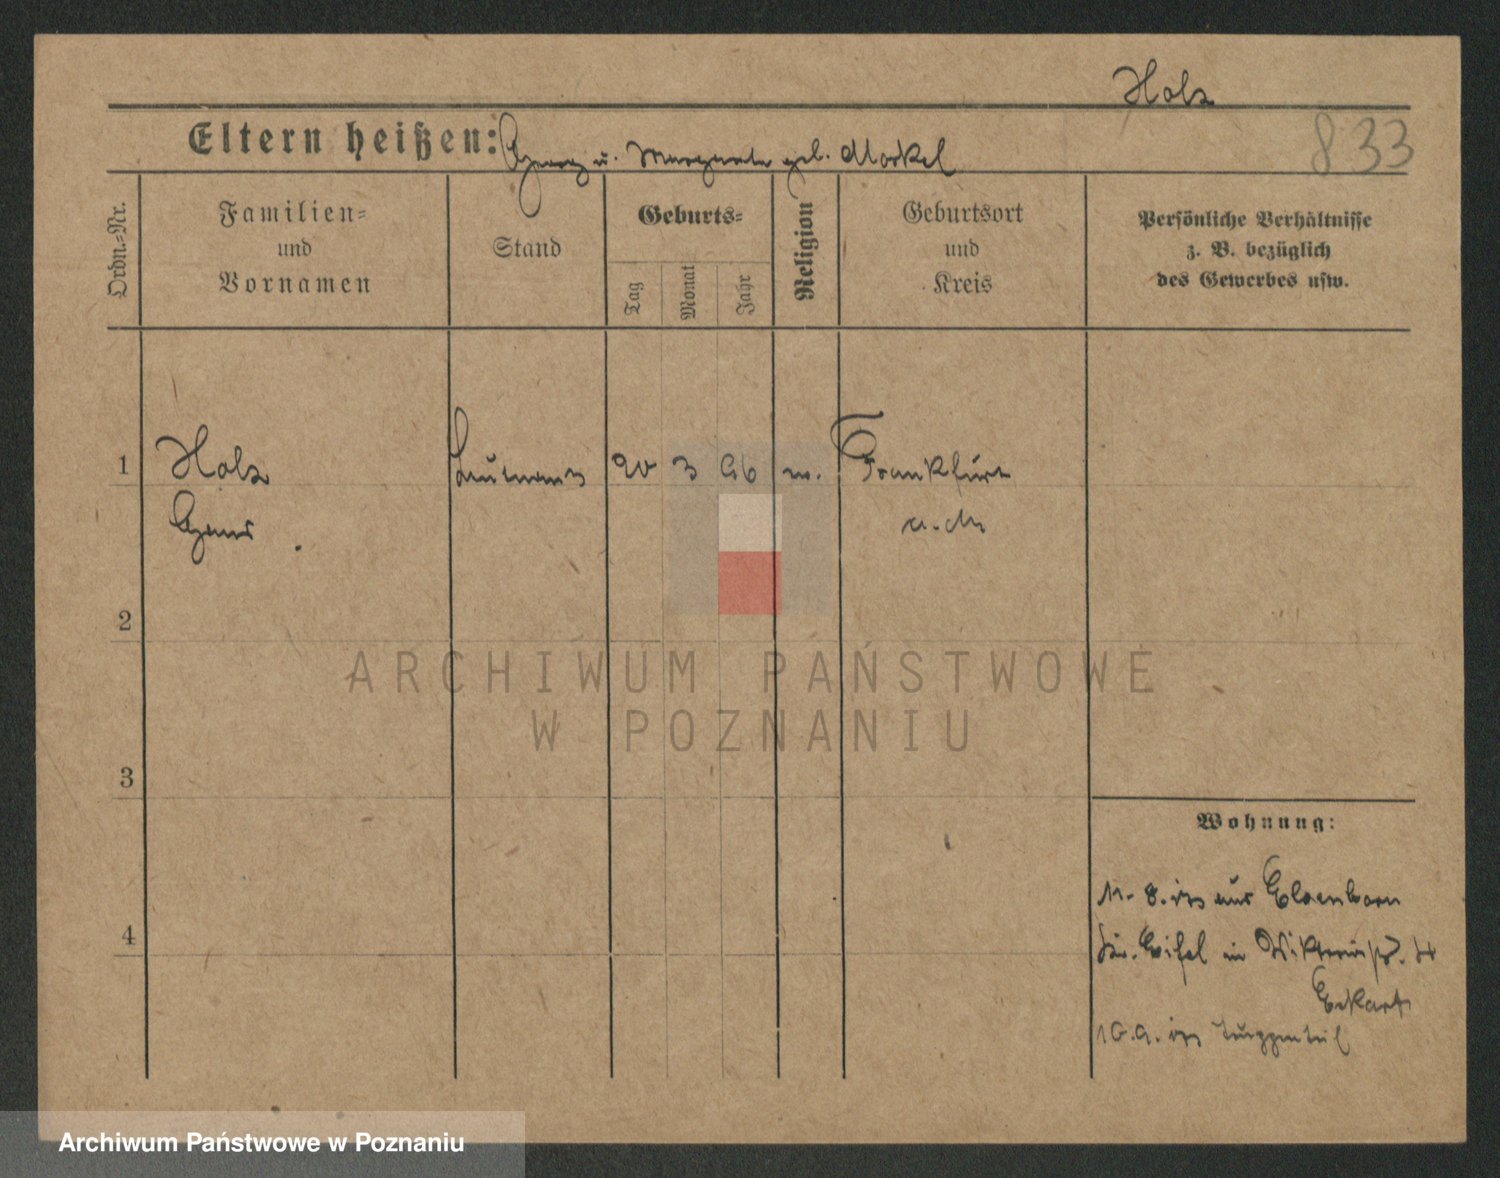 Holz
833
Eltern heißen: Georg u. Margarete geb. Morkel
Ordn.-Nr.
Familien-
und
Vornamen
Stand
Geburts-
Tag
Monat
Jahr
Religion
Geburtsort
und
Kreis
Persönliche Verhältnisse
z. B. bezüglich
des Gewerbes usw.
1 Holz Leutnant 20 3 96 Frankfurt
a. M.
2
3
4
Wohnung:
11. 8. aus Elsenborn
Eifel in
Eckart
Truppenteil
ARCHIWUM PAŃSTWOWE
W POZNANIU
Archiwum Państwowe w Poznaniu